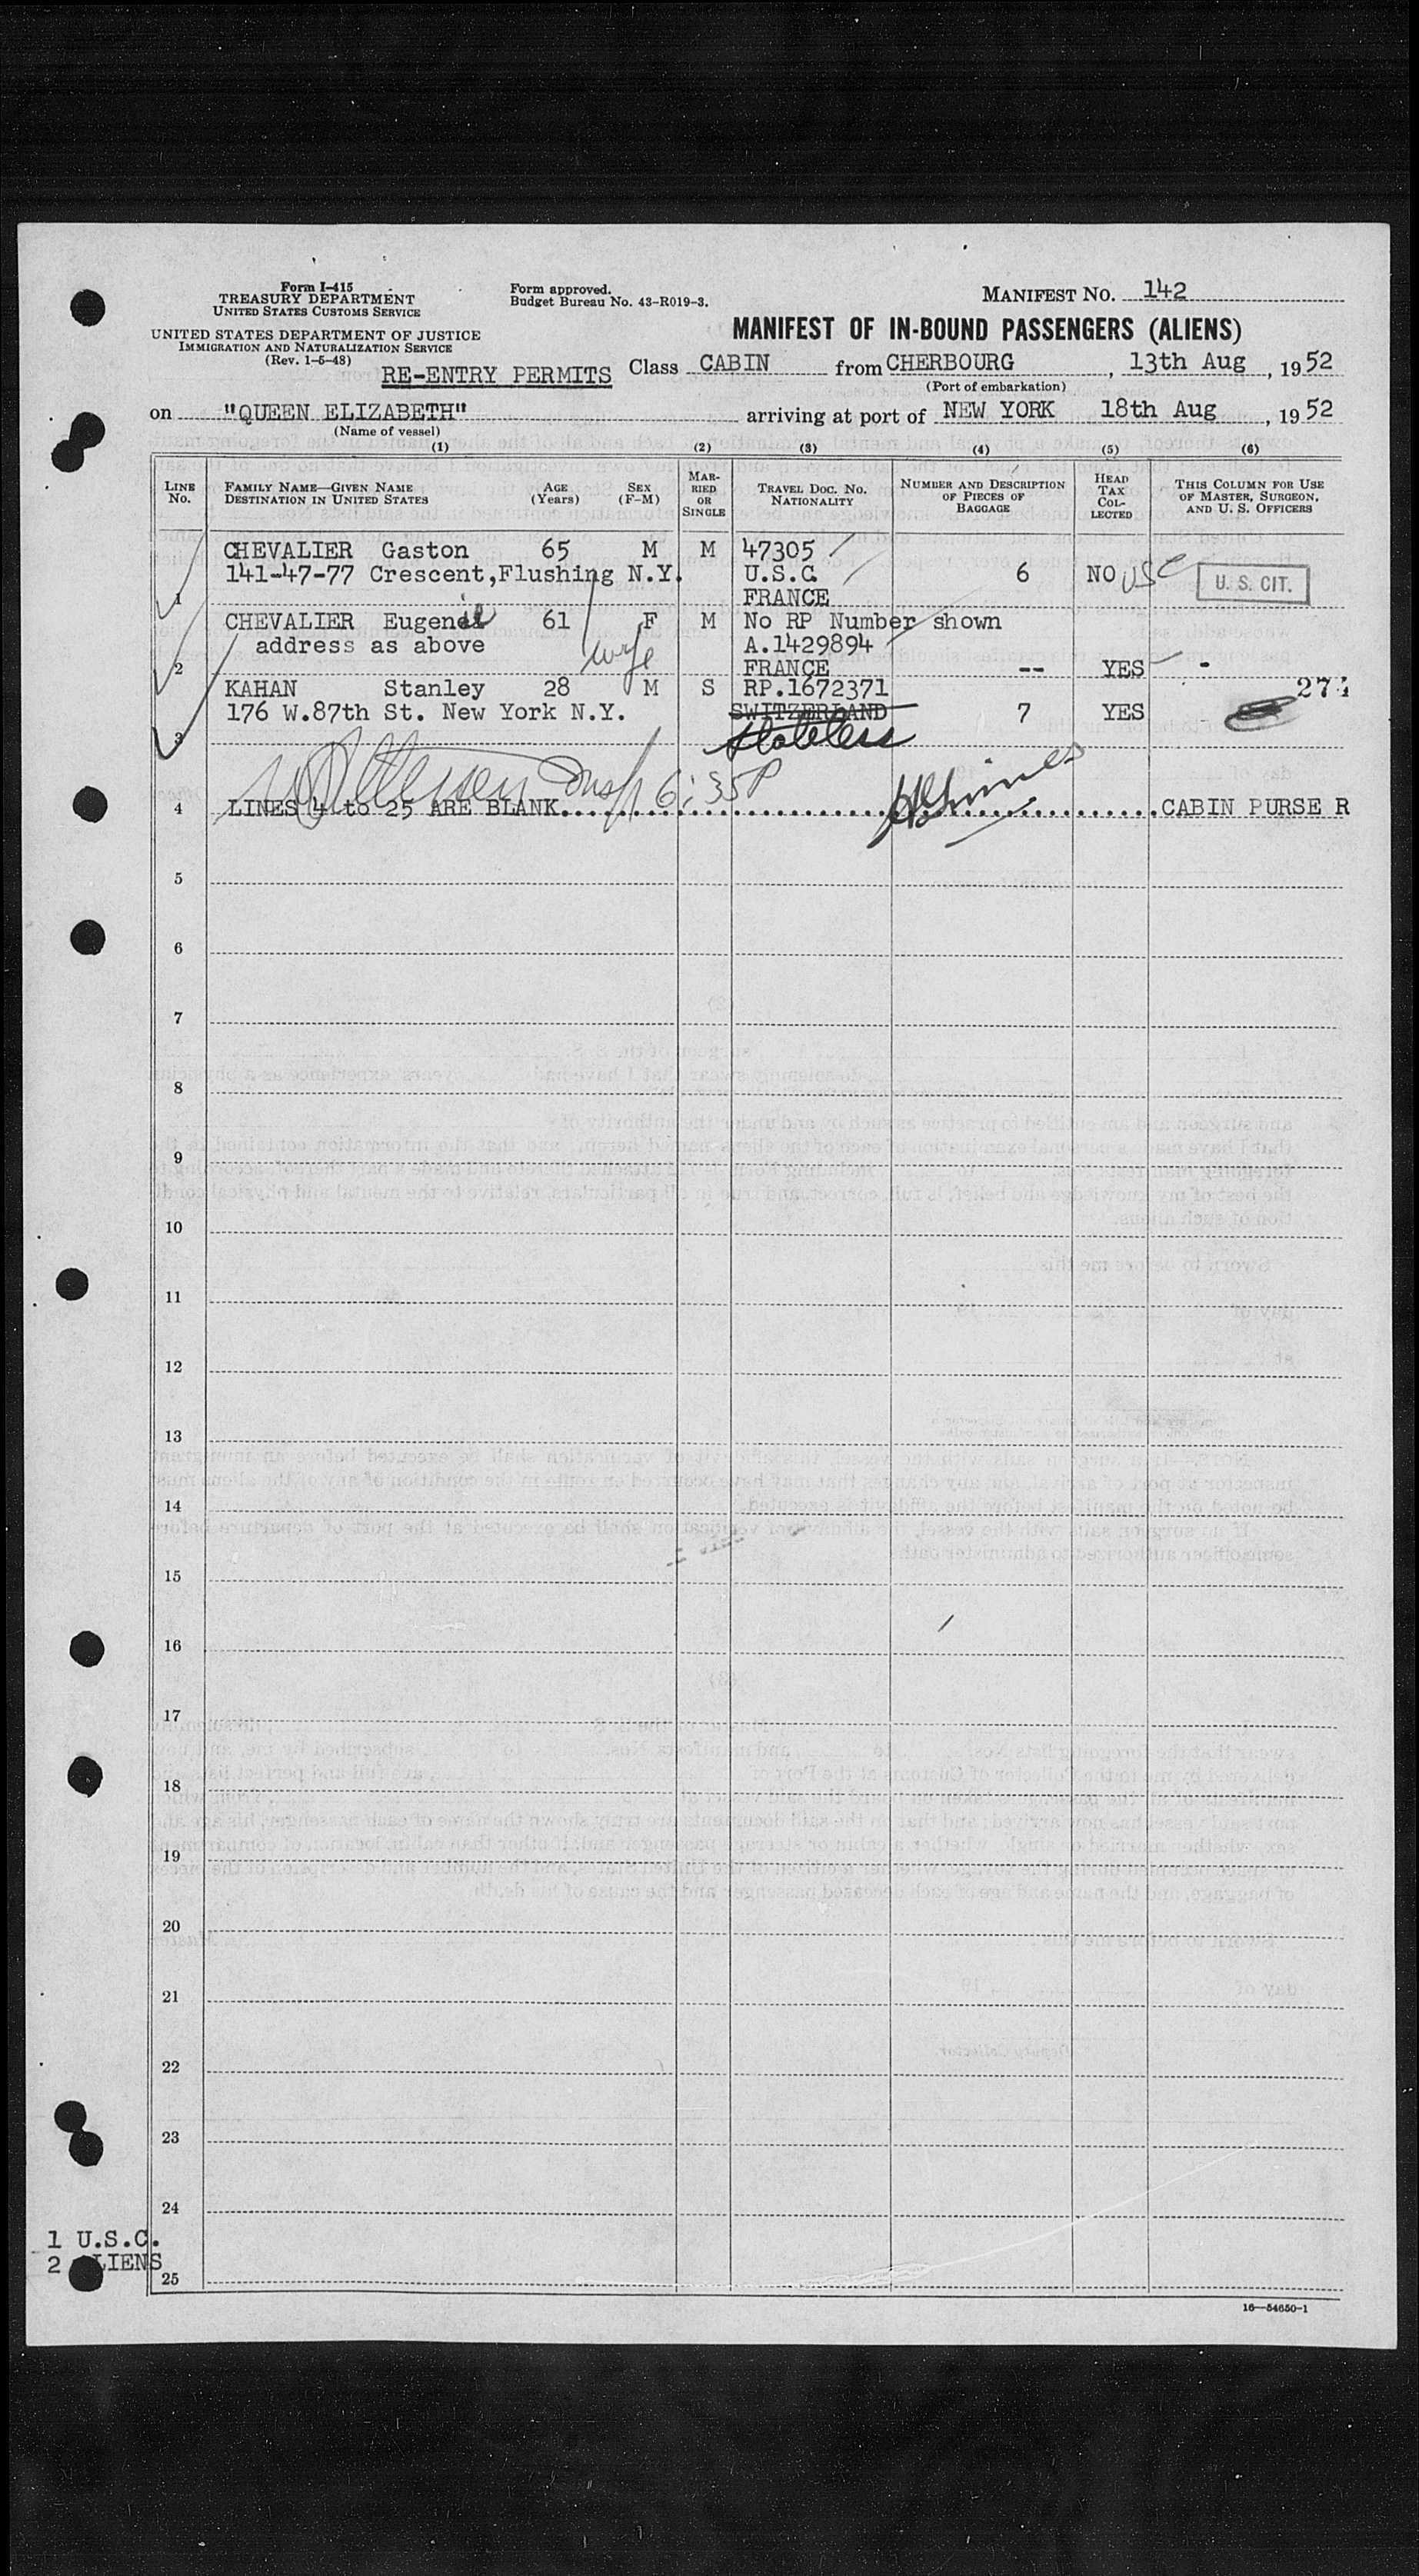 Form I-415
TREASURY DEPARTMENT
UNITED STATES CUSTOMS SERVICE
UNITED STATES DEPARTMENT OF JUSTICE
IMMIGRATION AND NATURALIZATION SERVICE
(Rev. 1-5-48)
Form approved.
Budget Bureau No. 43-R019-3.
MANIFEST NO. 142
MANIFEST OF IN-BOUND PASSENGERS (ALIENS)
RE-ENTRY PERMITS Class CABIN from CHERBOURG, 13th Aug, 1952
(Port of embarkation)
on "QUEEN ELIZABETH" arriving at port of NEW YORK 18th Aug, 1952
(Name of vessel)
(1) (2) (3) (4) (5) (6)
LINE No. FAMILY NAME—GIVEN NAME DESTINATION IN UNITED STATES AGE (Years) SEX (F-M) MARRIED OR SINGLE TRAVEL DOC. NO. NATIONALITY NUMBER AND DESCRIPTION OF PIECES OF BAGGAGE HEAD TAX COLLECTED THIS COLUMN FOR USE OF MASTER, SURGEON, AND U. S. OFFICERS
CHEVALIER Gaston 65 M M 47305
141-47-77 Crescent,Flushing N.Y. U.S.C. 6 NO USC U. S. CIT.
1 FRANCE
CHEVALIER Eugenie 61 F M No RP Number shown
address as above wife A.1429894
2 FRANCE -- YES -
KAHAN Stanley 28 M S RP.1672371 274
176 W.87th St. New York N.Y. SWITZERLAND 7 YES -
3 Stateless
Insp 6:35P
4 LINES 4 to 25 ARE BLANK..........CABIN PURSE R
5
6
7
8
9
10
11
12
13
14
15
16
17
18
19
20
21
22
23
24
1 U.S.C.
2 ALIENS
25
16—54650-1